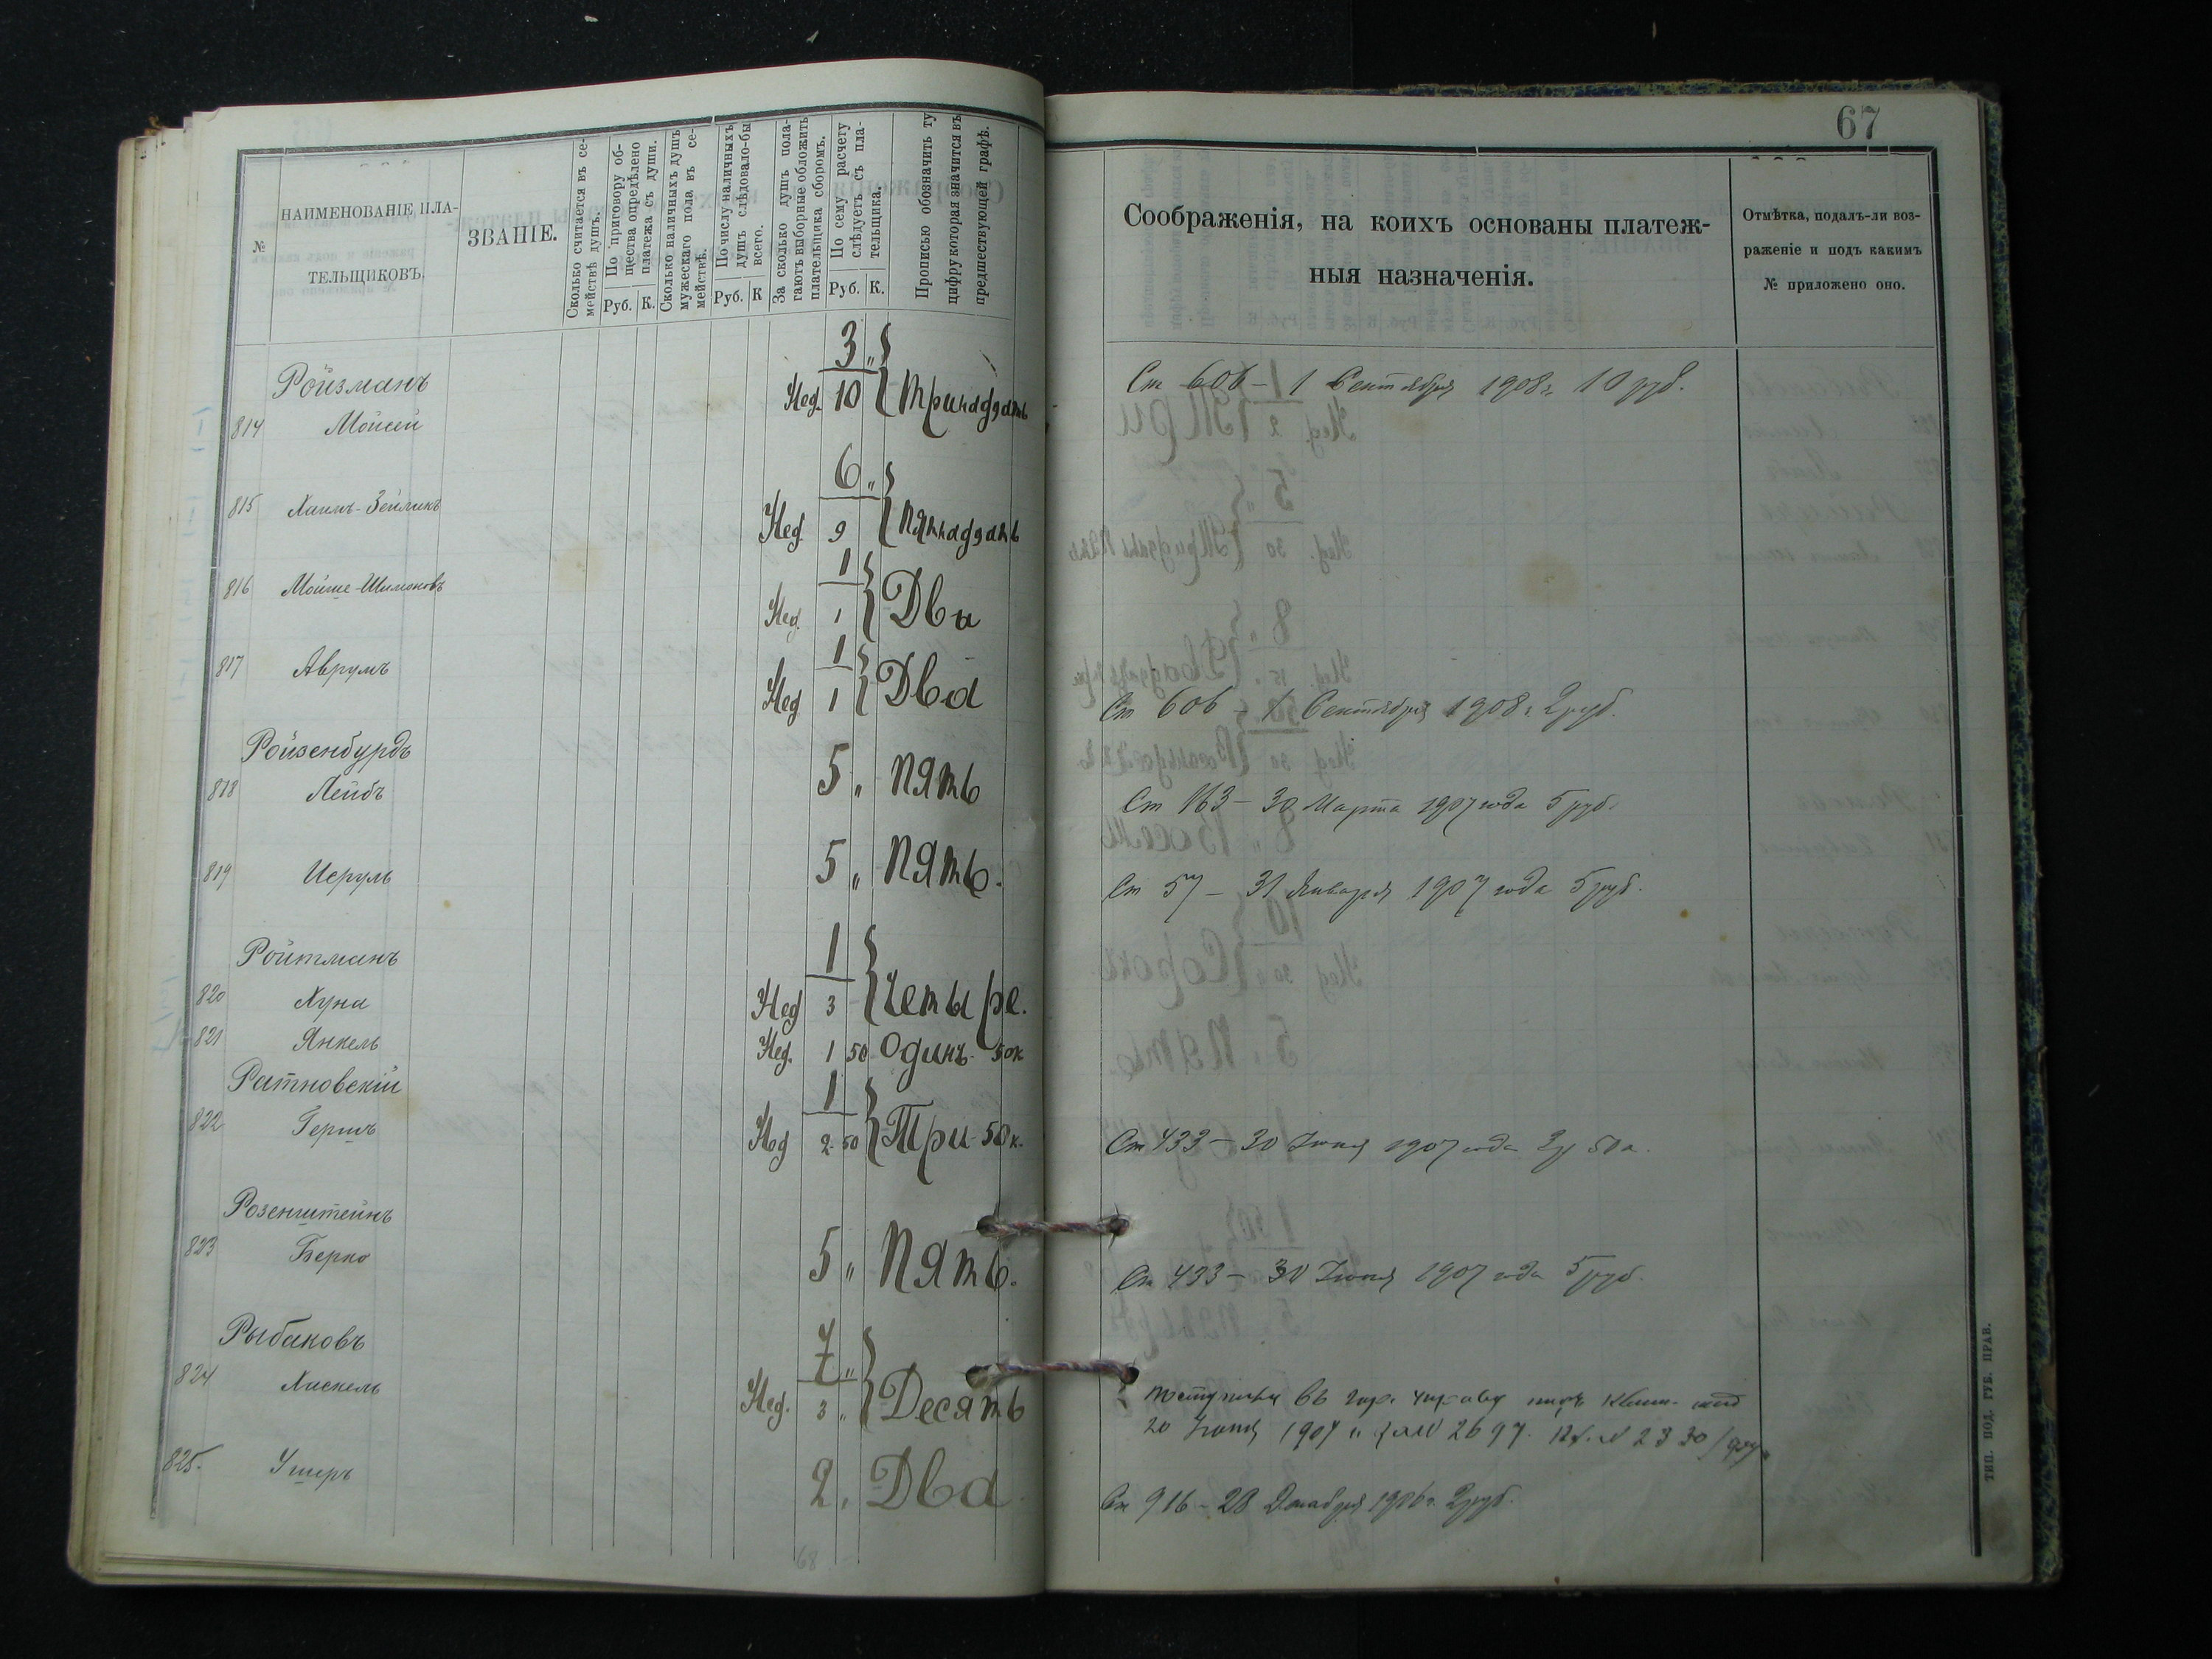 67
№
НАИМЕНОВАНІЕ ПЛА-
ТЕЛЬЩИКОВЪ.
ЗВАНІЕ.
Сколько считается въ се-
мействѣ душъ.
По приговору об-
щества опредѣлено
платежа съ души.
Руб. К.
Сколько наличныхъ душъ
мужескаго пола въ се-
мействѣ.
По числу наличныхъ
душъ слѣдовало-бы
всего.
Руб. К
За сколько душъ пола-
гаютъ выборные обложить
плательщика сборомъ.
По сему расчету
слѣдуетъ съ пла-
тельщика.
Руб. К.
Прописью обозначить ту
цифру которая значится въ
предшествующей графѣ.
Соображенія, на коихъ основаны платеж-
ныя назначенія.
Отмѣтка, подалъ-ли воз-
раженіе и подъ какимъ
№ приложено оно.
Ройзманъ 3 „
814 Мойсей Нед. 10 Тринадцать
Ст 606 – 1 Сентября 1908 г. 10 руб.
6 „
815 Хаимъ-Зейликъ Нед 9 Пятнадцать
1
816 Мойше-Шимоновъ Нед. 1 Два
1
817 Аврумъ Нед 1 Два
Ст 606 – 1 Сентября 1908 г. 2 руб.
Ройзенбурдъ
818 Лейбъ 5 „ Пять
Ст 163 – 30 Марта 1907 года 5 руб.
819 Исруль 5 „ Пять.
Ст 57 – 31 Января 1907 года 5 руб.
Ройтманъ 1
820 Хуна Нед 3 Четыре.
821 Янкель Нед. 1 50 Одинъ 50к
Ратновскій 1
822 Гершъ Нед 2 50 Три 50 к.
Ст 433 – 30 Іюня 1907 года
Розенштейнъ
823 Берко 5 „ Пять.
Ст 433 – 30 Іюня 1907 года 5 руб.
Рыбаковъ 7 „
824 Хискель Нед. 3 „ Десять
въ
20 1907 2697. 2330
825. Ушеръ 2 „ Два
Ст 916 – 28 Декабря 1906 г. 2 руб.
68
ТИП. ПОД. ГУБ. ПРАВ.